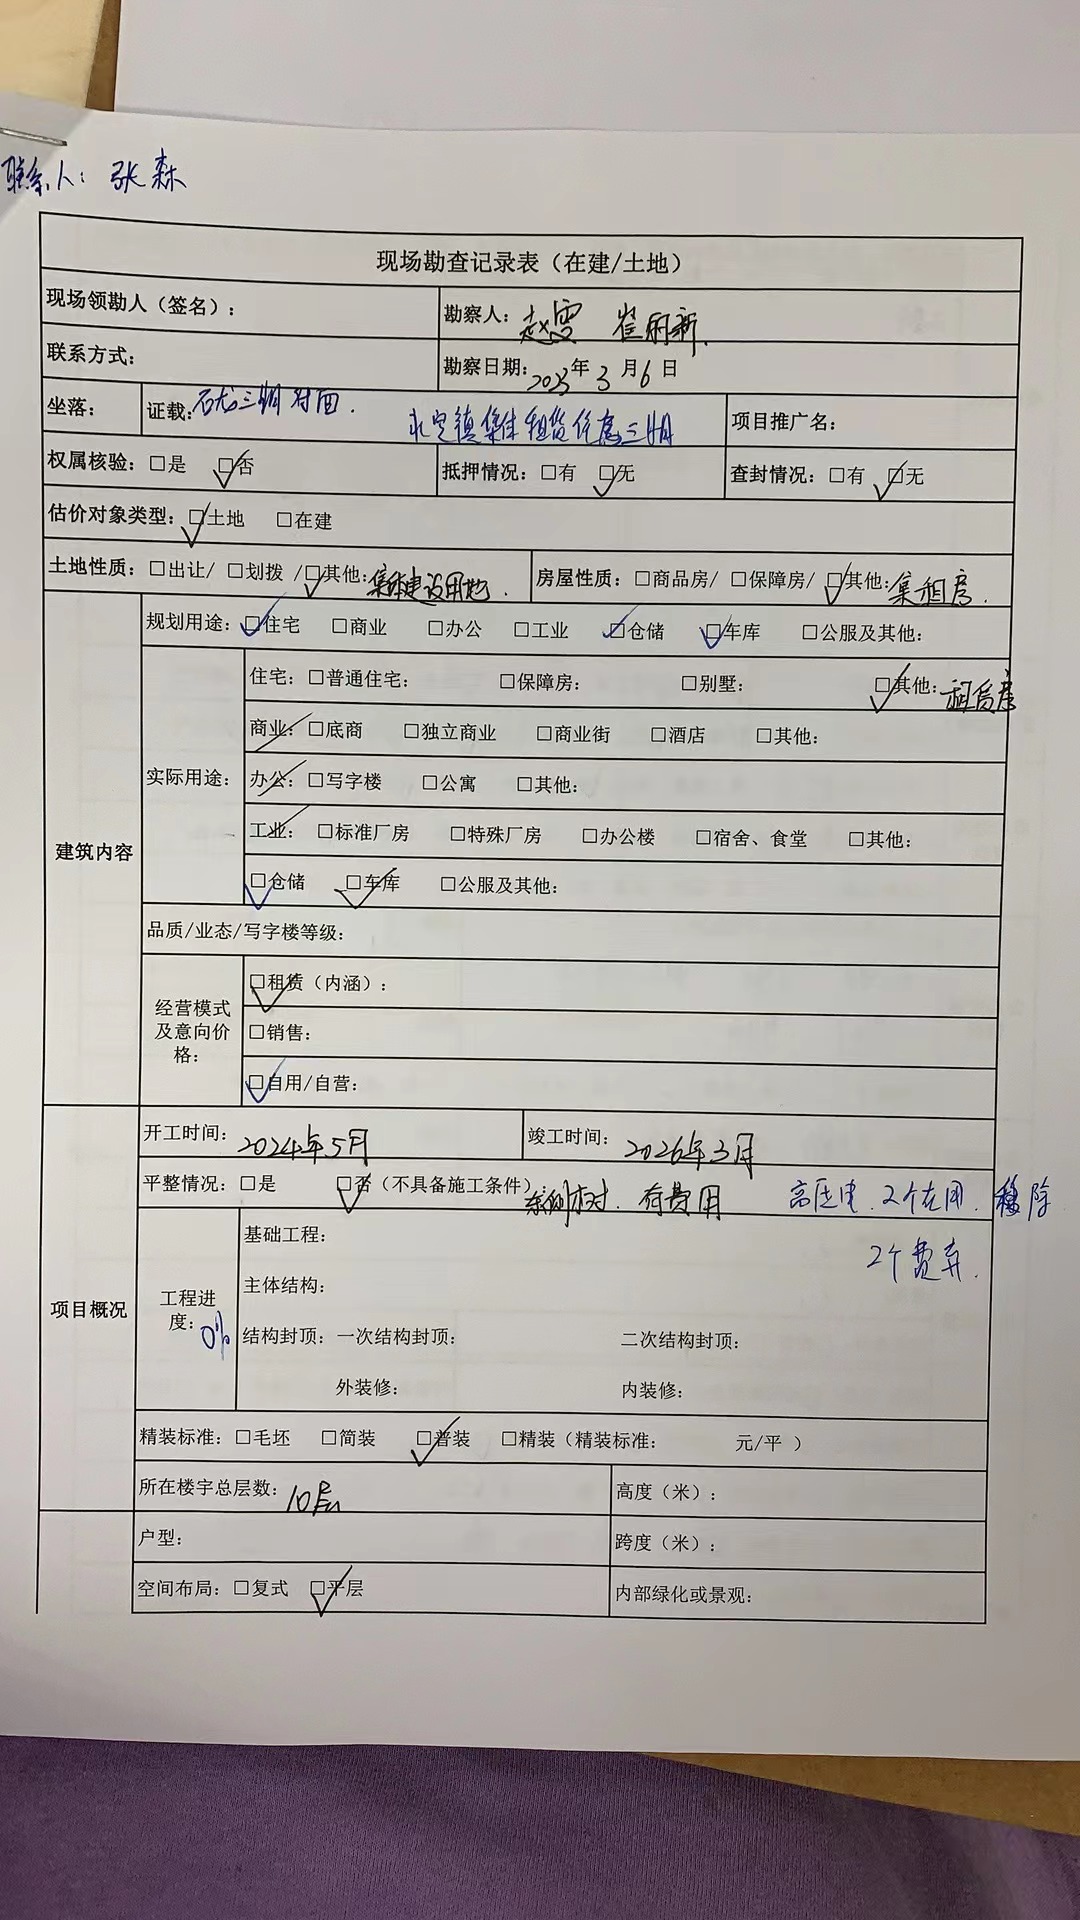 联系人：张森
现场勘查记录表（在建/土地）
现场领勘人（签名）：
勘察人：赵雯 崔丽新
联系方式：
勘察日期：2023年3月6日
坐落：
证载：石龙三期对面．
永定镇集体租赁住房三期
项目推广名：
权属核验：□是 ☑否
抵押情况：□有 ☑无
查封情况：□有 ☑无
估价对象类型：☑土地 □在建
土地性质：□出让/ □划拨 /☑其他：集体建设用地．
房屋性质：□商品房/ □保障房/ ☑其他：集租房．
建筑内容
规划用途：☑住宅 □商业 □办公 □工业 ☑仓储 ☑车库 □公服及其他：
实际用途：
住宅：□普通住宅： □保障房： □别墅： ☑其他：租赁房
商业：□底商 □独立商业 □商业街 □酒店 □其他：
办公：□写字楼 □公寓 □其他：
工业：□标准厂房 □特殊厂房 □办公楼 □宿舍、食堂 □其他：
☑仓储 ☑车库 □公服及其他：
品质/业态/写字楼等级：
经营模式及意向价格：
☑租赁（内涵）：
□销售：
☑自用/自营：
项目概况
开工时间：2024年5月
竣工时间：2026年3月
平整情况：□是 ☑否（不具备施工条件）东侧树．有费用 高压电．2个在用．移除
2个费弃．
工程进度：0%
基础工程：
主体结构：
结构封顶：一次结构封顶： 二次结构封顶：
外装修： 内装修：
精装标准：□毛坯 □简装 ☑普装 □精装（精装标准： 元/平 ）
所在楼宇总层数：10层
高度（米）：
户型：
跨度（米）：
空间布局：□复式 ☑平层
内部绿化或景观：